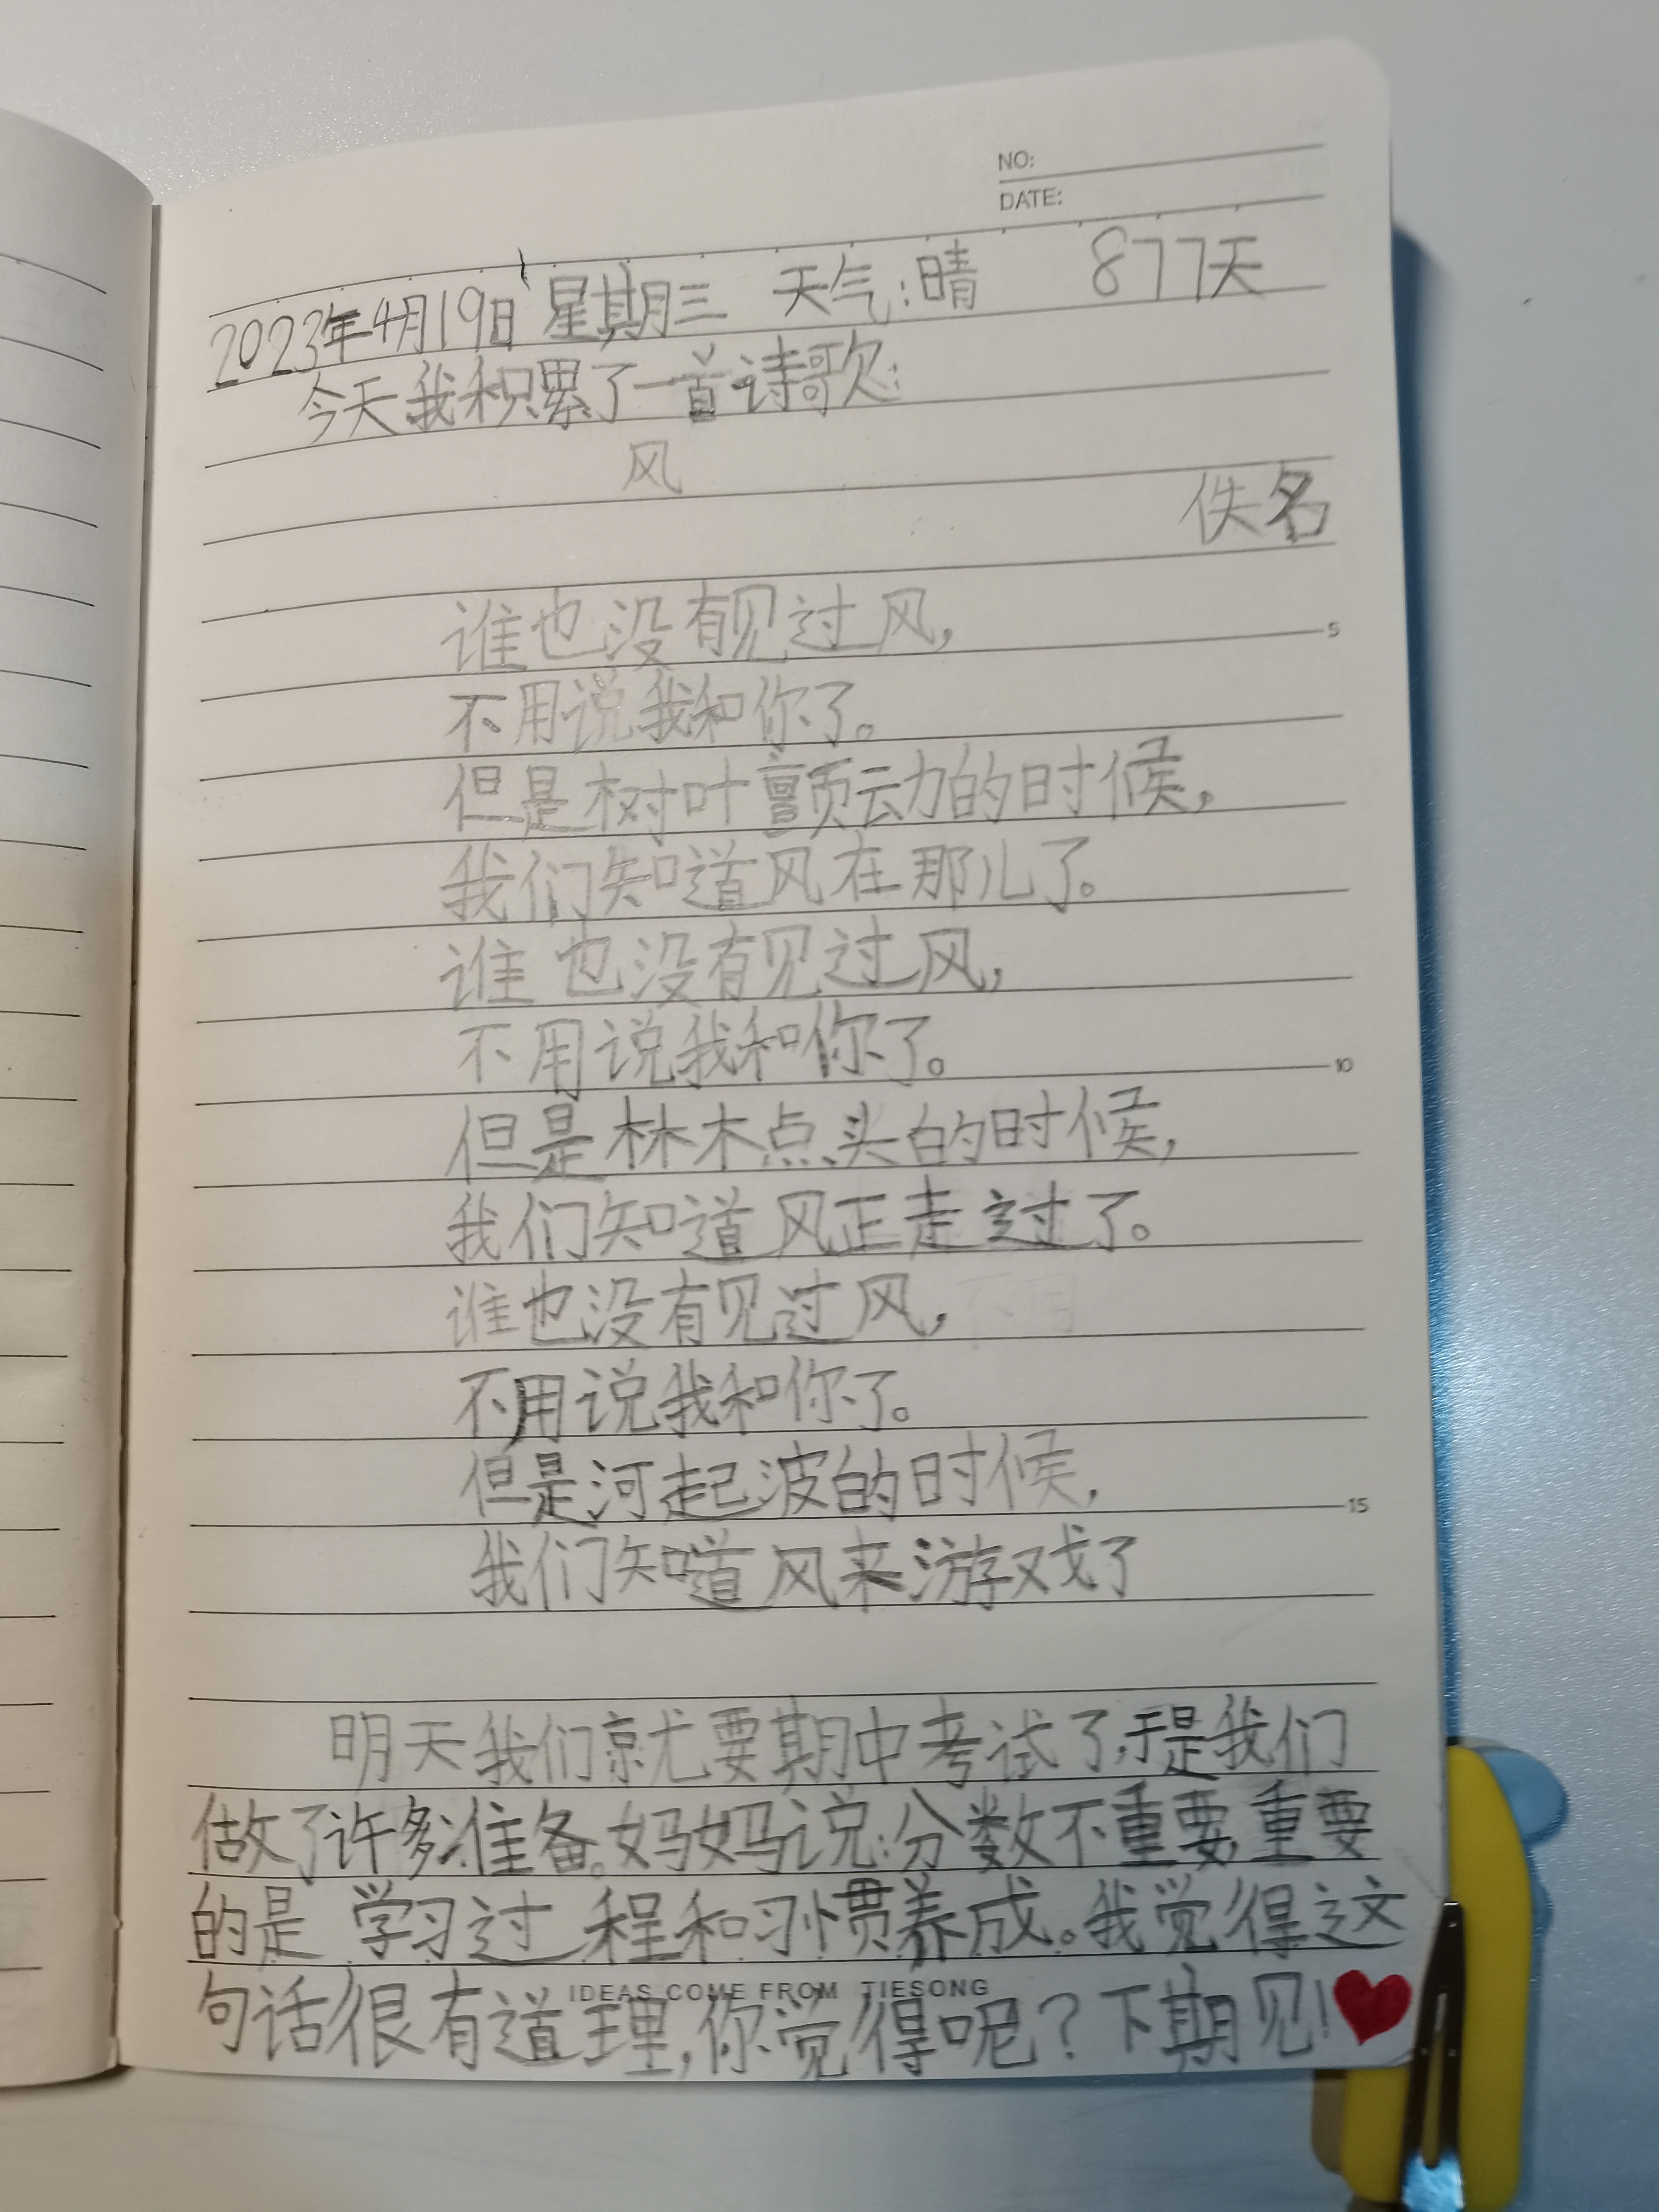 NO:
DATE:
2023年4月19日 星期三 天气:晴 877天
今天我积累了一首诗歌:
风
佚名
谁也没有见过风,
不用说我和你了。
但是树叶颤动的时候,
我们知道风在那儿了。
谁也没有见过风,
不用说我和你了。
但是林木点头的时候,
我们知道风正走过了。
谁也没有见过风,
不用说我和你了。
但是河起波的时候,
我们知道风来游戏了
明天我们就要期中考试了,于是我们
做了许多准备。妈妈说:分数不重要,重要
的是学习过程和习惯养成。我觉得这
句话很有道理,你觉得呢?下期见!
IDEAS COME FROM TIESONG
5
10
15